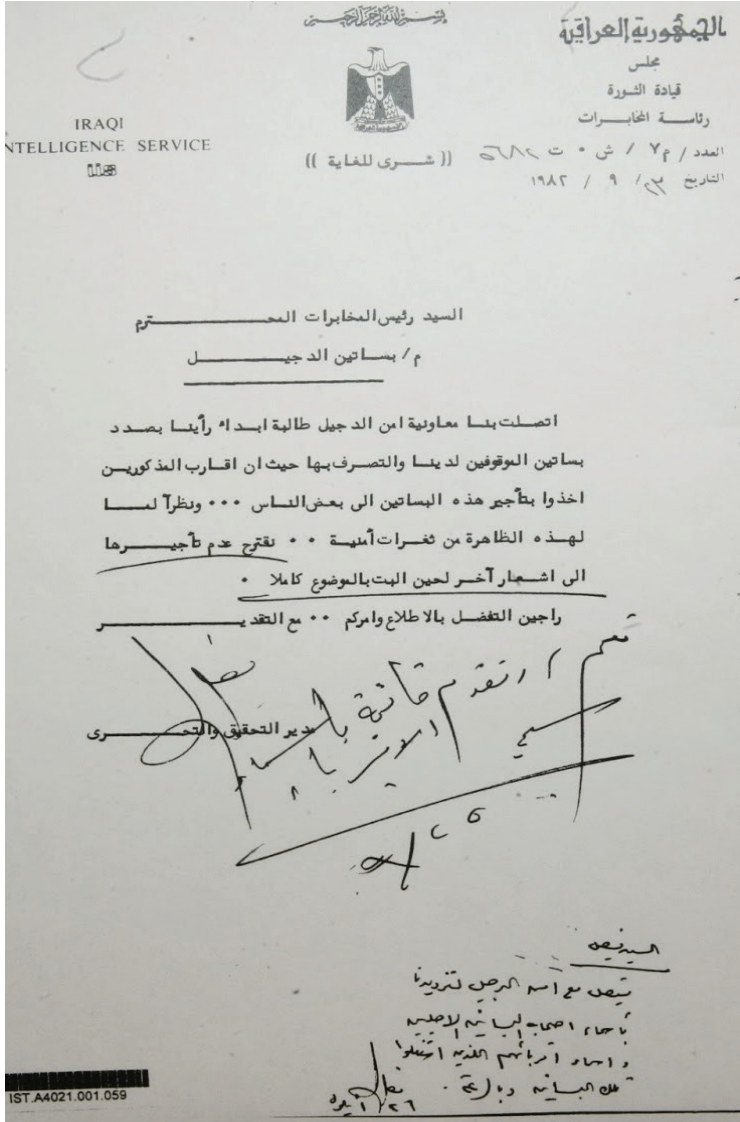 بسم الله الرحمن الرحيم
الجمهورية العراقية
مجلس
قيادة الثورة
رئاسة المخابرات
العدد / م٧ / ش ٠ ت ٥٦٨٢
التاريخ ٢٣ / ٩ / ١٩٨٢
IRAQI
NTELLIGENCE SERVICE
IIS
(( شرى للغاية ))
السيد رئيس المخابرات المحترم
م / بساتين الدجيل
اتصلت بنا معاونية امن الدجيل طالبة ابداء رأينا بصدد
بساتين الموقوفين لدينا والتصرف بها حيث ان اقارب المذكورين
اخذوا بتأجير هذه البساتين الى بعض الناس ٠٠٠ ونظرآ لما
لهذه الظاهرة من ثغرات أمنية ٠٠ نقترح عدم تأجيرها
الى اشعار آخر لحين البت بالموضوع كاملا ٠
راجين التفضل بالاطلاع وامركم ٠٠ مع التقدير
نعم / وتقدم قائمة باسماء
الاقرباء
مدير التحقيق والتحرى
السيد فيصل
يتصل مع امن الدجيل لتزويدنا
بأسماء اصحاب البساتين الاصليين
و اسماء اقربائهم اللذين استغلوا
تلك البساتين
٢٦ / ايلول
IST.A4021.001.059